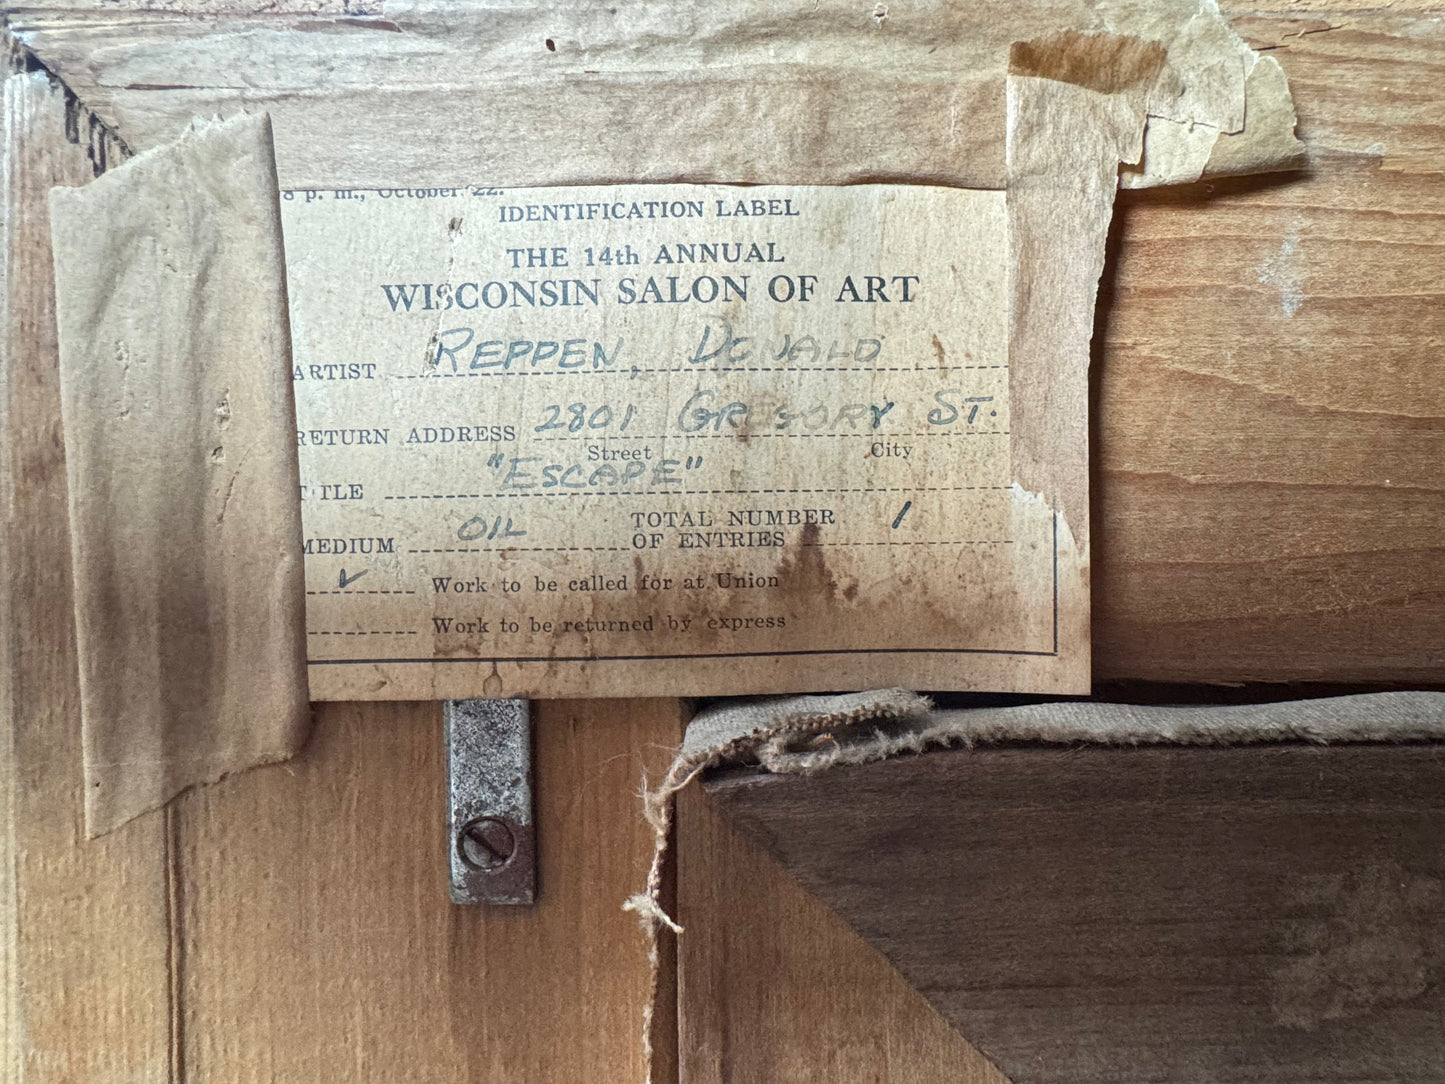 8 p. m., October 22.
IDENTIFICATION LABEL
THE 14th ANNUAL
WISCONSIN SALON OF ART
ARTIST REPPEN, DONALD
RETURN ADDRESS 2801 GREGORY ST.
Street City
TITLE "ESCAPE"
MEDIUM OIL TOTAL NUMBER OF ENTRIES 1
✓ Work to be called for at Union
Work to be returned by express